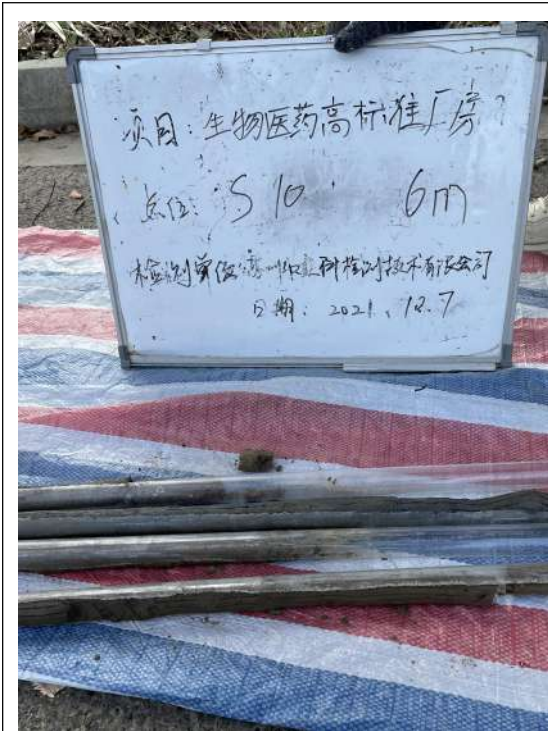 项目:生物医药高标准厂房
点位: S10 6m
检测单位:苏州 检测技术有限公司
日期: 2021.12.7